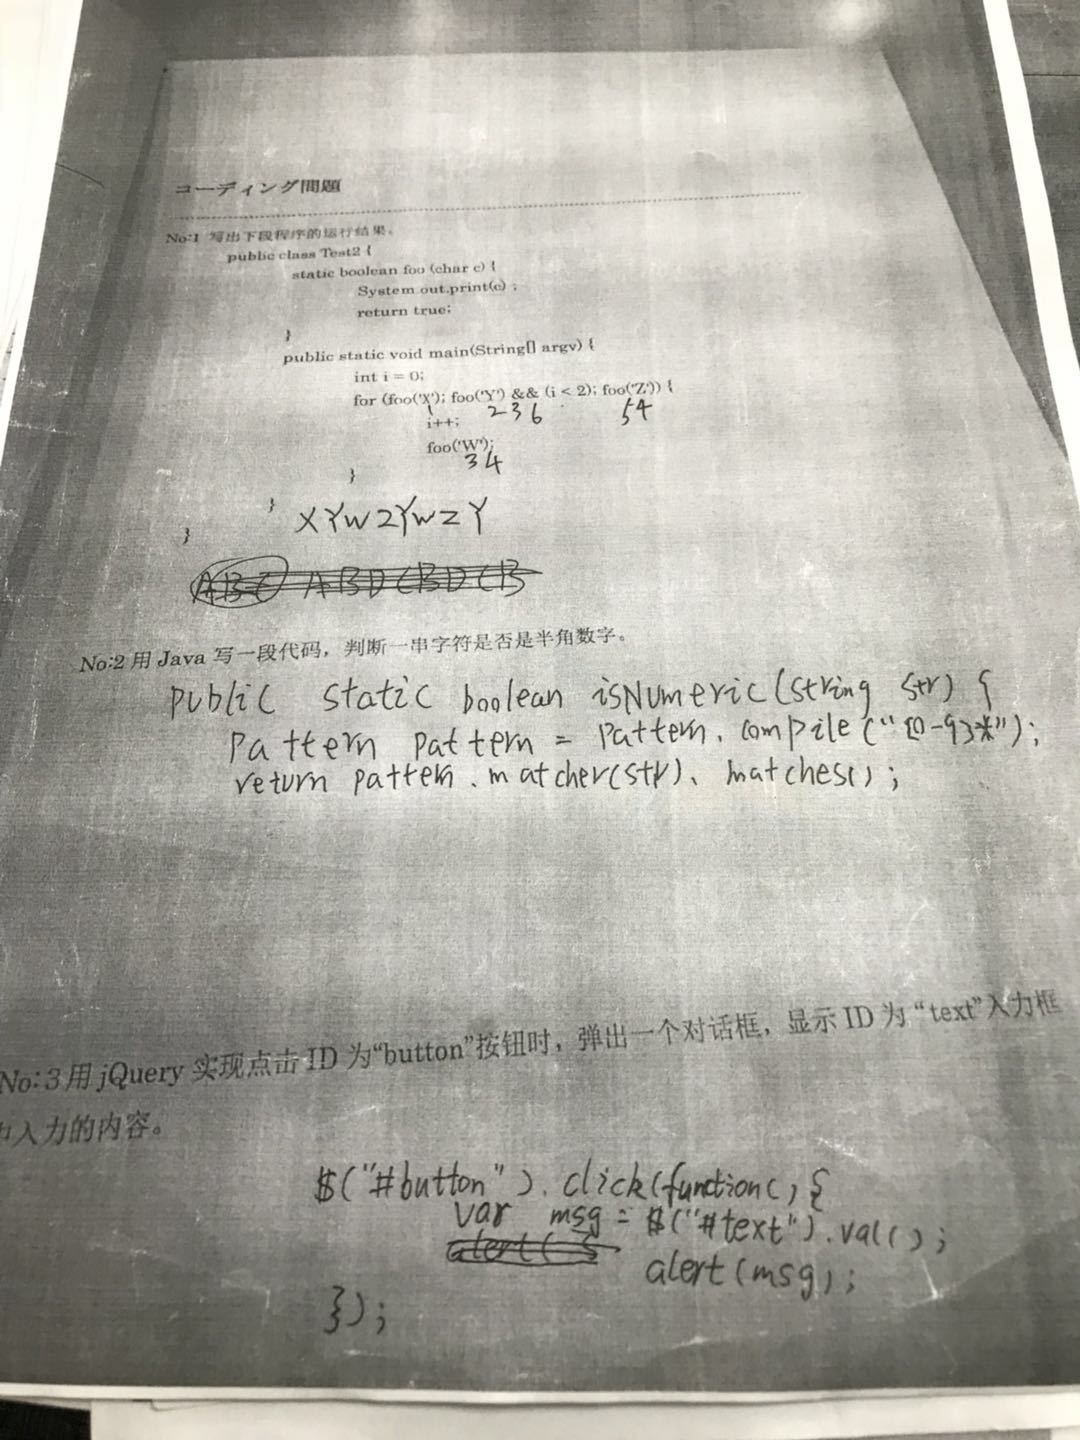 コーディング問題
No:1 写出下段程序的运行结果。
public class Test2 {
static boolean foo (char c) {
System.out.print(c) ;
return true;
}
public static void main(String[] argv) {
int i = 0;
for (foo('X'); foo('Y') && (i < 2); foo('Z')) {
1 236 54
i++;
foo('W');
34
}
}
}
XYWZYWZY
ABC ABDCBDCB
No:2 用 Java 写一段代码，判断一串字符是否是半角数字。
public static boolean isNumeric(string str) {
Pattern pattern = pattern.compile("[0-9]*");
return pattern.matcher(str).matches();
No:3 用 jQuery 实现点击 ID 为“button”按钮时，弹出一个对话框，显示 ID 为 “text”入力框
中入力的内容。
$("#button").click(function(){
var msg = $("#text").val();
alert(
alert(msg);
});